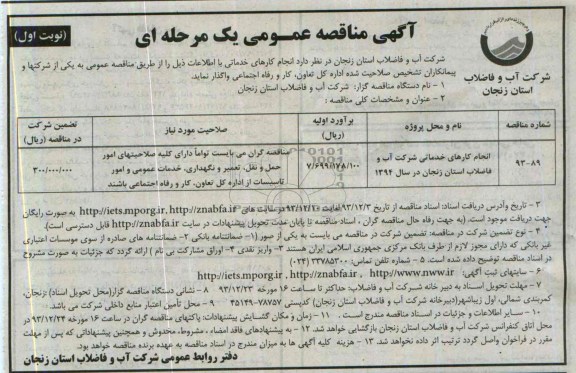 آگهی مناقصه عمـومی یک مرحله ای
(نوبت اول)
شرکت آب و فاضلاب استان زنجان
شرکت آب و فاضلاب استان زنجان در نظر دارد انجام کارهای خدماتی با اطلاعات ذیل را از طریق مناقصه عمومی به یکی از شرکتها و
پیمانکاران تشخیص صلاحیت شده اداره کل تعاون، کار و رفاه اجتماعی واگذار نماید.
۱ - نام دستگاه مناقصه گزار: شرکت آب و فاضلاب استان زنجان
۲ - عنوان و مشخصات کلی مناقصه :
شماره مناقصه
نام و محل پروژه
برآورد اولیه (ریال)
صلاحیت مورد نیاز
تضمین شرکت در مناقصه (ریال)
۹۳-۸۹
انجام کارهای خدماتی شرکت آب و فاضلاب استان زنجان در سال ۱۳۹۴
۷/۶۹۹/۱۷۸/۱۰۰
مناقصه گران می بایست توأماً دارای کلیه صلاحیتهای امور
حمل و نقل، تعمیر و نگهداری، خدمات عمومی و امور
تاسیسات از اداره کل تعاون، کار و رفاه اجتماعی باشند
۳۰۰/۰۰۰/۰۰۰
۳ - تاریخ وآدرس دریافت اسناد: اسناد مناقصه از تاریخ ۹۳/۱۲/۳ لغایت ۹۳/۱۲/۱۰ در سایت های http://iets.mporg.ir, http://znabfa.ir به صورت رایگان
جهت دریافت موجود است. (به جهت رفاه حال مناقصه گران ، اسناد مناقصه تا پایان مدت تحویل پیشنهادات در سایت http://znabfa.ir قابل دسترسی است).
۴ - نوع تضمین شرکت در مناقصه: تضمین شرکت در مناقصه می بایست به یکی از صور (۱- ضمانتنامه بانکی ۲- ضمانتنامه های صادره از سوی موسسات اعتباری
غیر بانکی که دارای مجوز لازم از طرف بانک مرکزی جمهوری اسلامی ایران هستند ۳- واریز نقدی ۴- اوراق مشارکت بی نام ) ارائه گردد که جزئیات به صورت مشروح
در اسناد مناقصه توضیح داده شده است. ۵ - شماره تلفن تماس: ۳۳۷۸۵۳۰۰ (۰۲۴)
۶ - سایتهای ثبت آگهی: http://iets.mporg.ir , http://znabfa.ir , http://www.nww.ir
۷ - مهلت تحویل اسناد به دبیر خانه شرکت آب و فاضلاب: حداکثر تا ساعت ۱۶ مورخه ۹۳/۱۲/۲۳ ۸ - نشانی دستگاه مناقصه گزار(محل تحویل اسناد): زنجان،
کمربندی شمالی، اول زیباشهر(دبیرخانه شرکت آب و فاضلاب استان زنجان) کدپستی ۷۸۷۵۷-۴۵۱۴۹ ۹ - محل تأمین اعتبار منابع داخلی شرکت می باشد.
۱۰ - سـایر اطلاعات و جزئیات در اسناد مناقصه مندرج است. ۱۱ - زمان و مکان گشایش پیشنهادات: پاکتهای مناقصه گران در ساعت ۱۶ مورخه ۹۳/۱۲/۲۴ در
محل اتاق کنفرانس شرکت آب و فاضلاب استان زنجان بازگشایی خواهد شد. ۱۲ - به پیشنهادهای فاقد امضاء ، مشروط، مخدوش و همچنین پیشنهاداتی که پس از مهلت
مقرر در فراخوان واصل گردد ترتیب اثر داده نخواهد شد. ۱۳ - هزینه کلیه آگهی ها به میزان مندرج در اسناد مناقصه به عهده برنده مناقصه خواهد بود.
دفتر روابط عمومی شرکت آب و فاضلاب استان زنجان